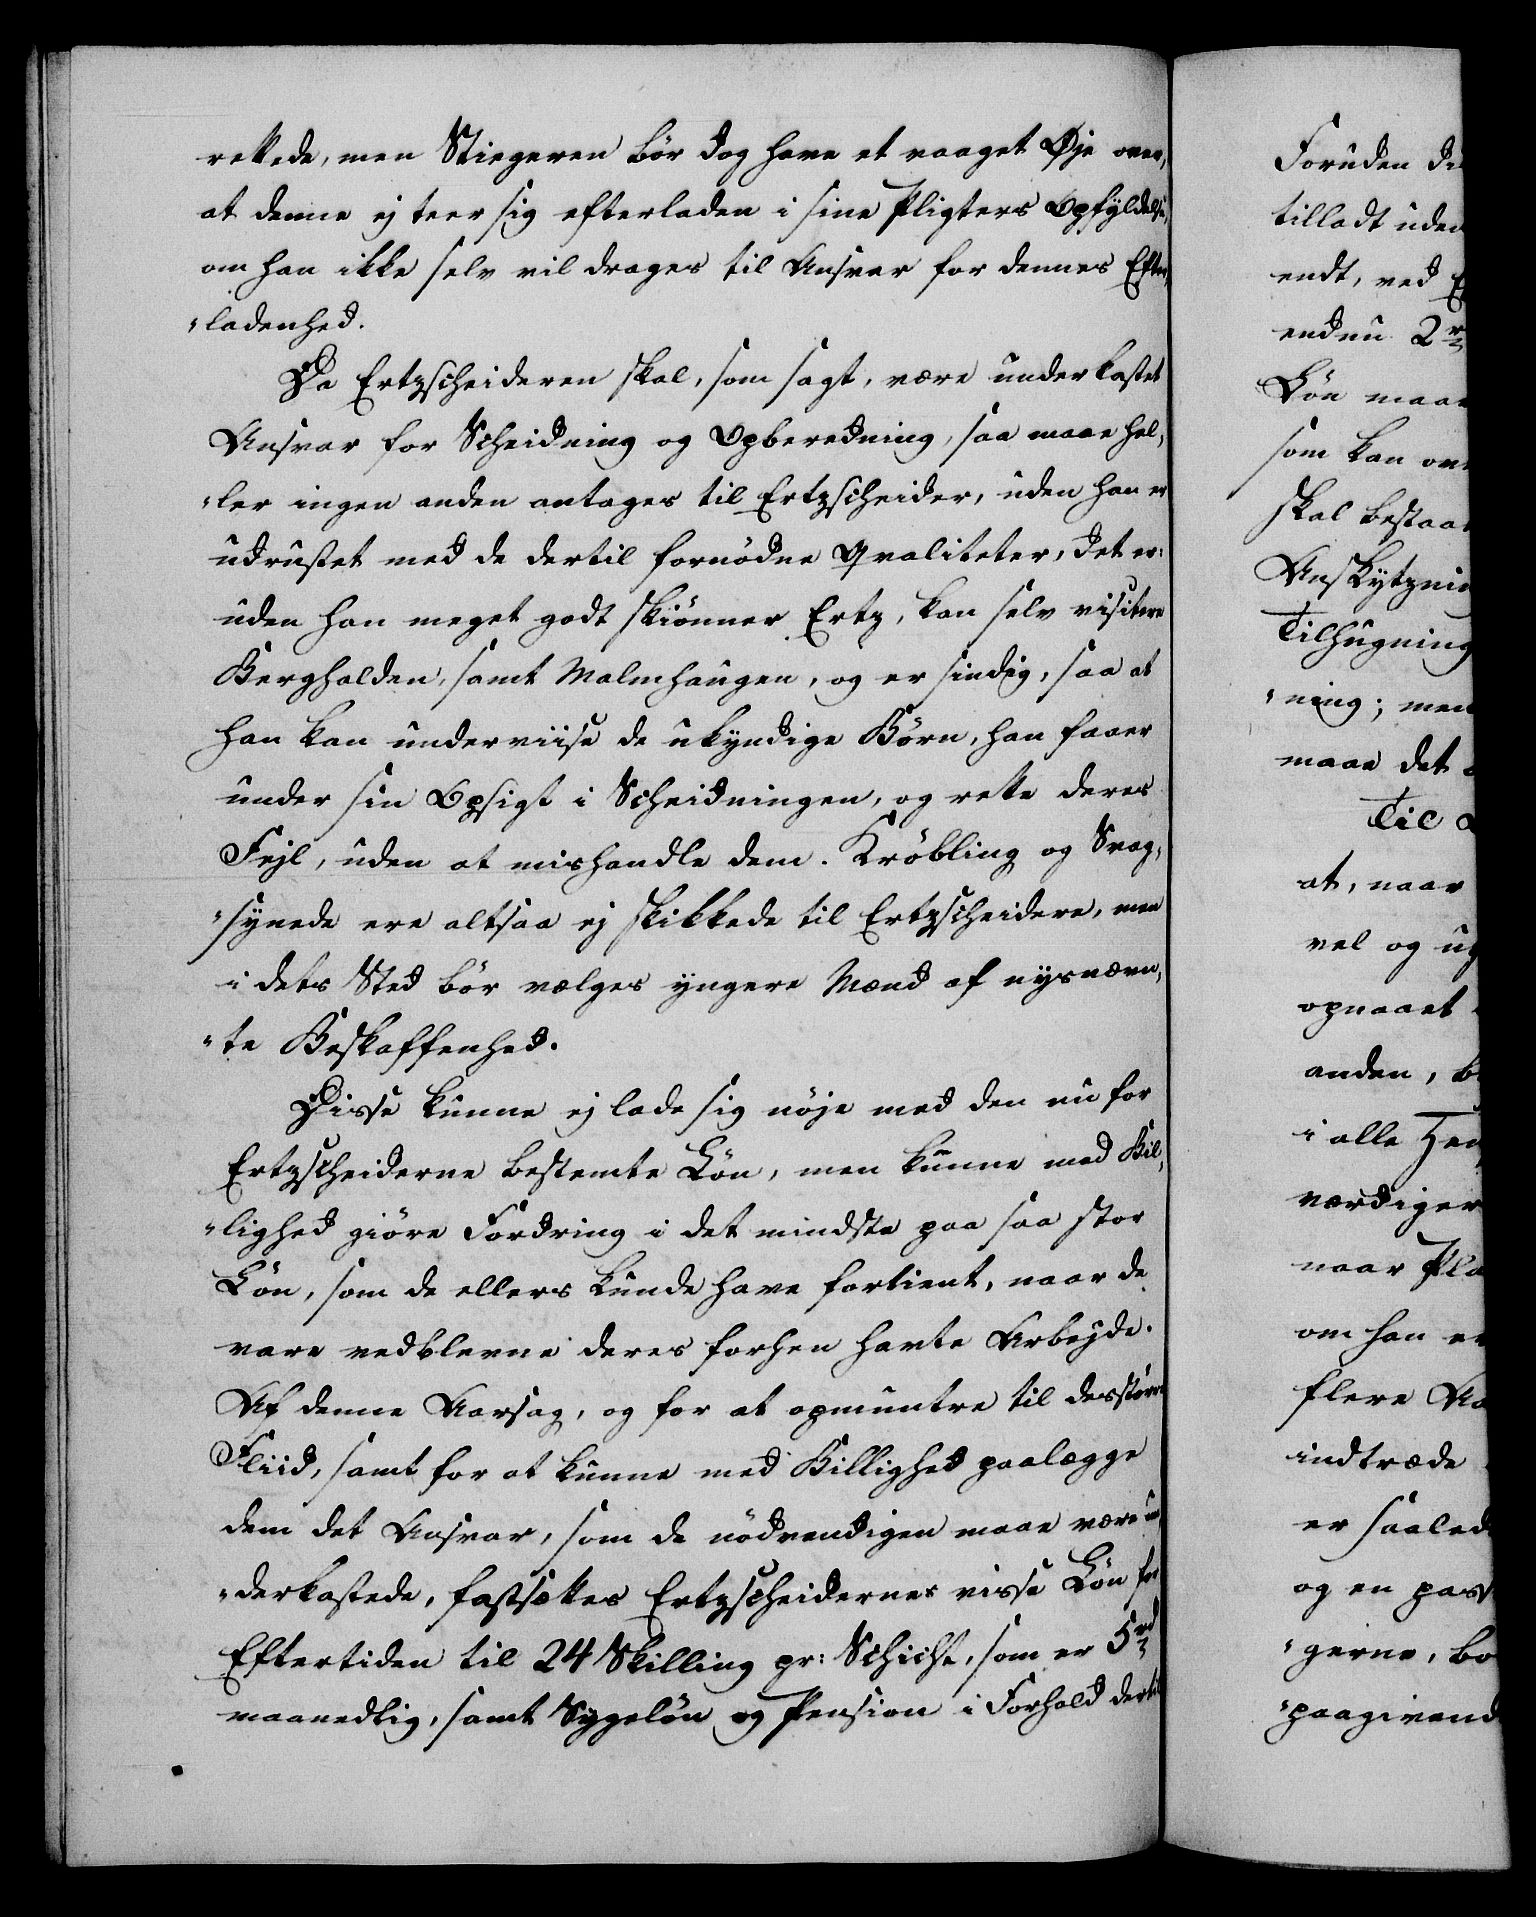 rettede, men Stiegeren bör dog have et vaaget Øje over,
at denne ej teer sig efterladen i sine Pligters Opfyldelse,
om han ikke selv vil drages til Ansvar for dennes Efter,
"ladenhed.
Da Ertzscheideren skal, som sagt, være underkastet
Ansvar for Scheidning og Opberedning, saa maae hel,
"ler ingen anden antages til Ertzscheider, uden han er
udrustet med de dertil fornödne Qvaliteter, det er:
uden han meget godt skiönner Ertz, kan selv visitere
Berghalden, samt Malmhaugen, og er sindig, saa at
han kan underviise de ukyndige Börn, han faaer
under sin Opsigt i Scheidningen, og rette deres
Fejl, uden at mishandle dem. Kröbling og Svag,
"synede ere altsaa ej skikkede til Ertzscheidere, men
i dets Sted bör vælges yngere Mænd af nysnævn,
"te Beskaffenhed.
Disse kunne ej lade sig nöje med den nu for
Ertzscheiderne bestemte Lön, men kunne med Bil,
"lighed giöre Fordring i det mindste paa saa stor
Lön, som de ellers kunde have fortient, naar de
vare vedblevne deres forhen havte Arbejde.
Af denne Aarsag, og for at opmuntre til desstörre
Fliid, samt for at kunne med Billighed paalægge
dem det Ansvar, som de nödvendigen maae være un
"derkastede, fastsættes Ertzscheidernes visse Lön for
Eftertiden til 24 Skilling pr: Schicht, som er 5rd
maanedlig, samt Sygelön og Pension i Forhold dertil
Foruden
tilladt uden
endt, ved
endnu 2
Lön maae
som kan
skal bestaae
Anskytzning
Tilhugning
"ning; men
maae det
Til
at, naar
vel og
opnaaet
anden,
i alle
værdiger
naar
om han
flere
indtræde
er saaled
og en pass
"gerne,
"paagivend